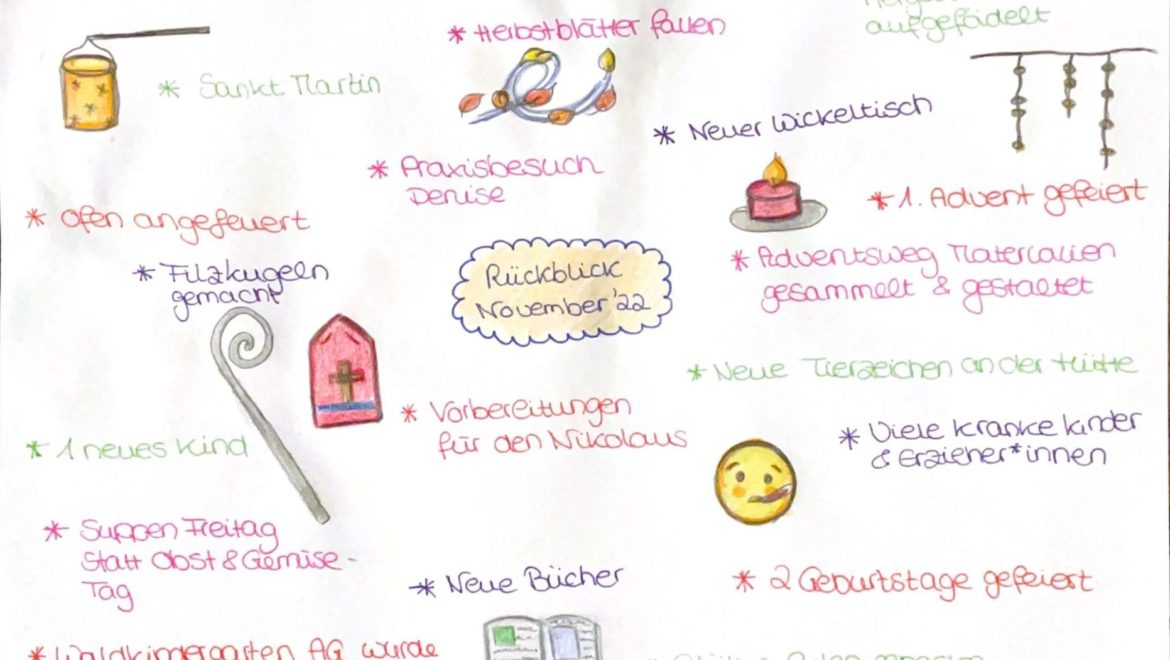 aufgefädelt
* Herbstblätter fallen
* Sankt Martin
* Neuer Wickeltisch
* Praxisbesuch
Denise
* 1. Advent gefeiert
* Ofen angefeuert
* Adventsweg Materialien
gesammelt & gestaltet
* Filzkugeln
gemacht
Rückblick
November '22
* Neue Tierzeichen an der Hütte
* Vorbereitungen
für den Nikolaus
* Viele kranke Kinder
& Erzieher*innen
* 1 neues Kind
* Suppen Freitag
statt Obst & Gemüse -
Tag
* Neue Bücher
* 2 Geburtstage gefeiert
* Waldkindergarten AG wurde